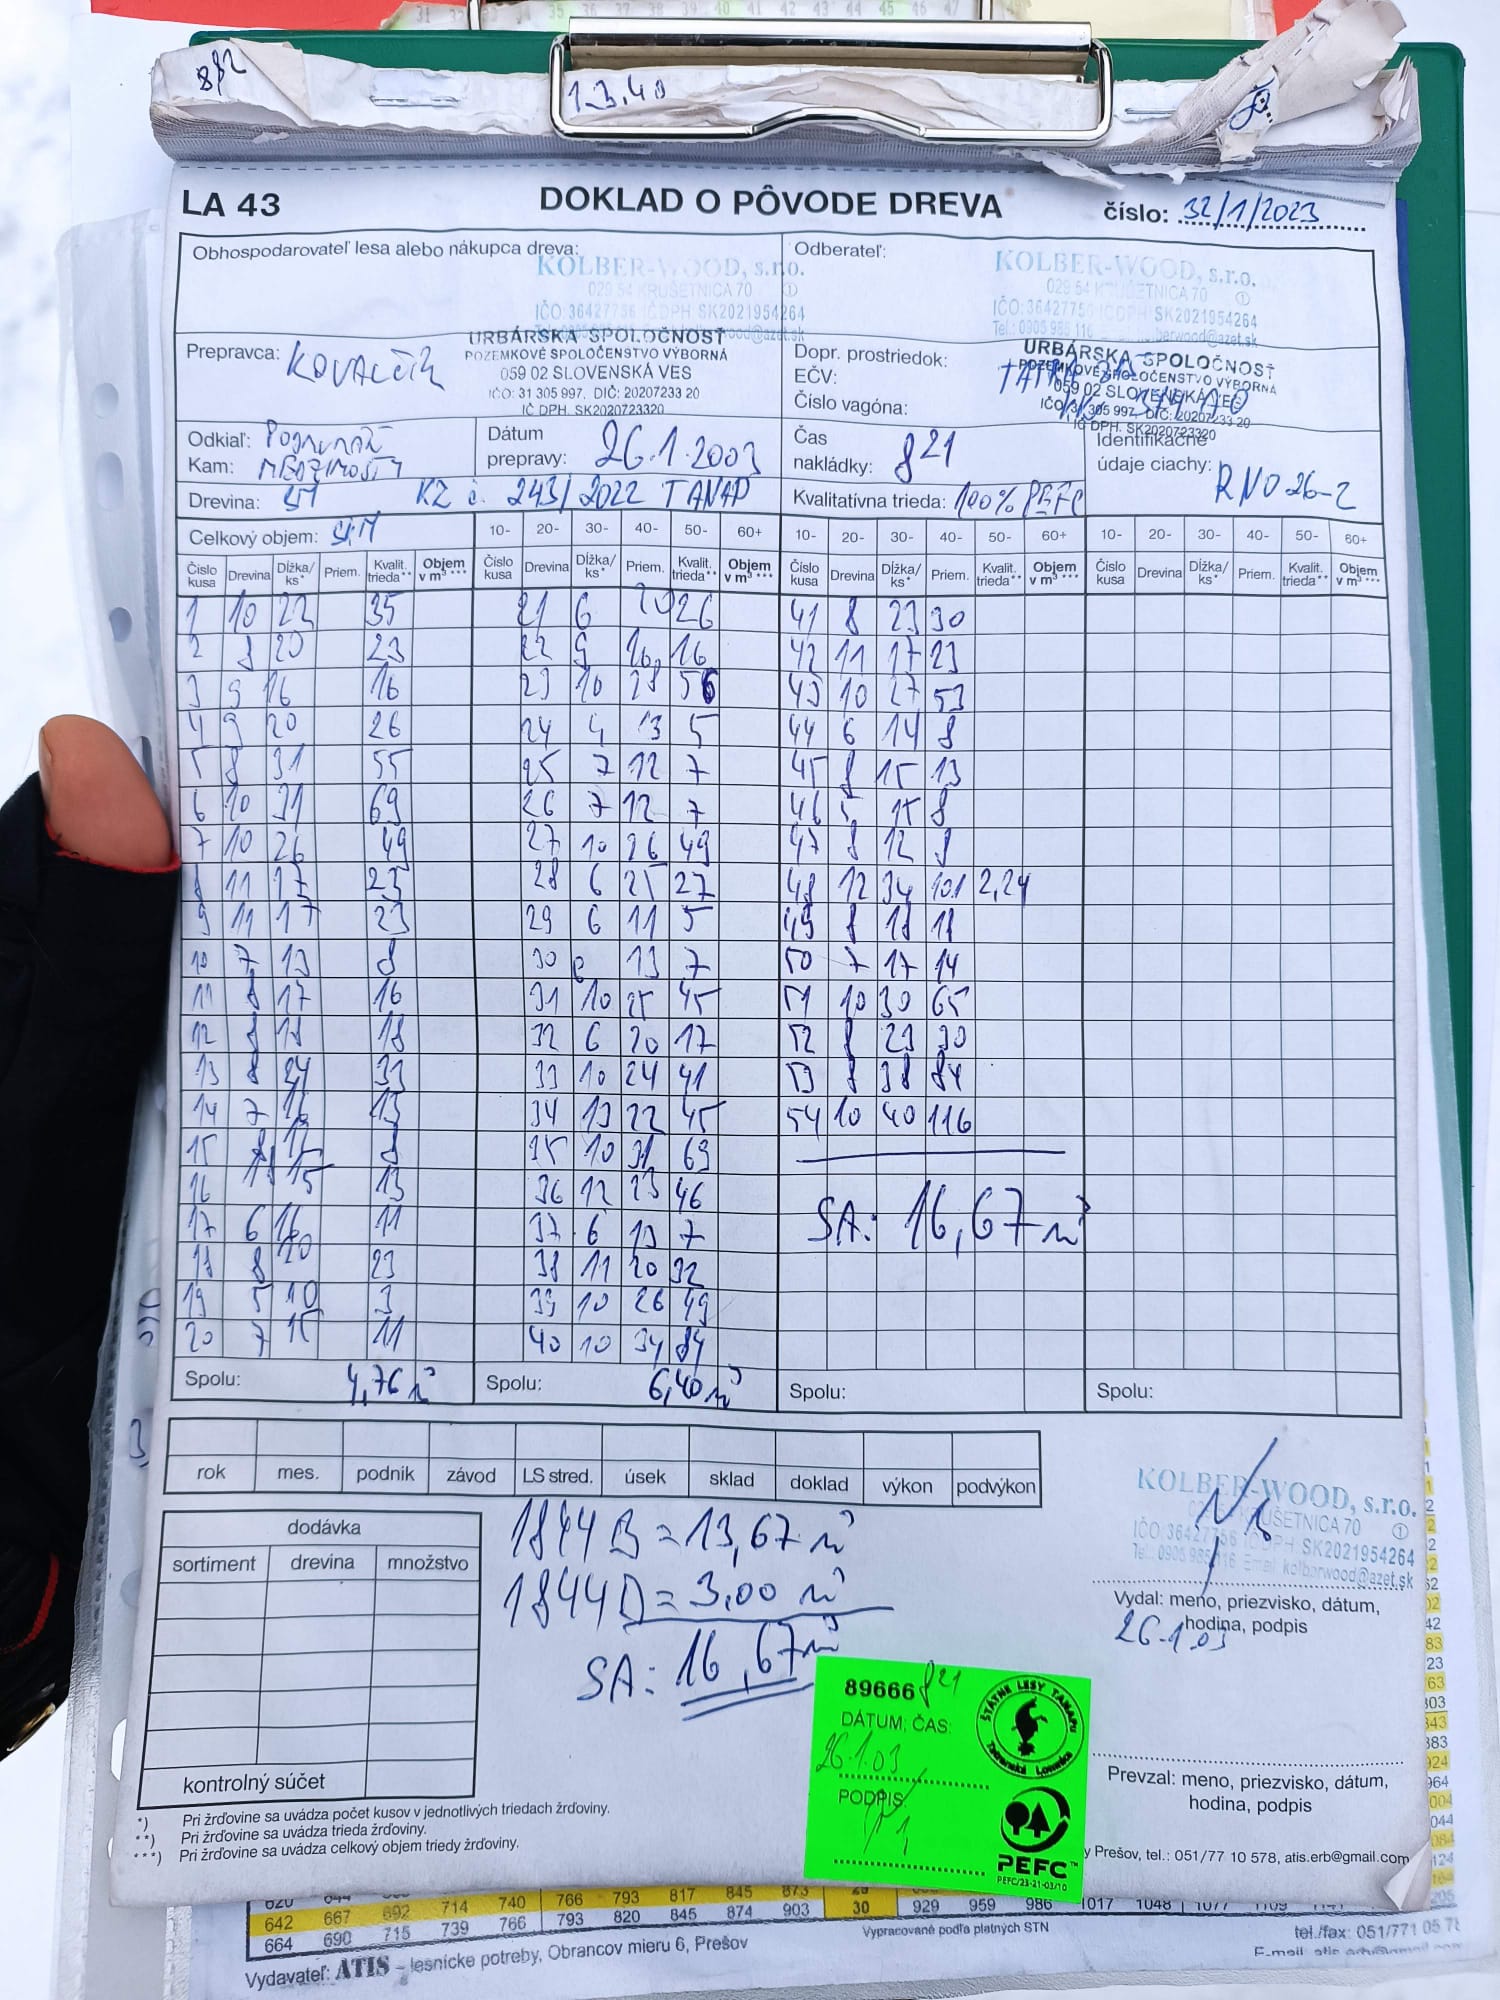 31 32 35 36 37 38 39 40 41 42 43 44 45 46 47
882
1.3,40
LA 43
DOKLAD O PÔVODE DREVA
číslo: 32/1/2023
Obhospodarovateľ lesa alebo nákupca dreva:
KOLBER-WOOD, s.r.o.
029 54 KRUŠETNICA 70 ①
IČO:36427756 IČDPH:SK2021954264
URBÁRSKA SPOLOČNOSŤ
POZEMKOVÉ SPOLOČENSTVO VÝBORNÁ
059 02 SLOVENSKÁ VES
IČO: 31 305 997, DIČ: 20207233 20
IČ DPH. SK2020723320
Odberateľ:
KOLBER-WOOD, s.r.o.
029 54 KRUŠETNICA 70 ①
IČO:36427756 IČDPH:SK2021954264
Tel.: 0905 985 116
URBÁRSKA SPOLOČNOSŤ
POZEMKOVÉ SPOLOČENSTVO VÝBORNÁ
059 02 SLOVENSKÁ VES
IČO: 31 305 997, DIČ: 20207233 20
IČ DPH. SK2020723320
Prepravca: KOVALČÍK
Dopr. prostriedok: TATRA
EČV:
Číslo vagóna:
Odkiaľ:
Kam:
Dátum prepravy: 26.1.2003
Čas nakládky: 8 21
Identifikačné údaje ciachy: RNO 26-2
Drevina: SM KZ č. 243/2022 TANAP
Kvalitatívna trieda: 100% PEFC
Celkový objem: SM
10- 20- 30- 40- 50- 60+ 10- 20- 30- 40- 50- 60+ 10- 20- 30- 40- 50- 60+
Číslo kusa Drevina Dĺžka/ks* Priem. Kvalit. trieda** Objem v m³***
Číslo kusa Drevina Dĺžka/ks* Priem. Kvalit. trieda** Objem v m³***
Číslo kusa Drevina Dĺžka/ks* Priem. Kvalit. trieda** Objem v m³***
Číslo kusa Drevina Dĺžka/ks* Priem. Kvalit. trieda** Objem v m³***
1 10 22 35 21 6 20 26 41 8 23 30
2 8 20 23 22 9 16 16 42 11 17 23
3 9 16 16 23 10 28 56 43 10 27 53
4 9 20 26 24 4 13 5 44 6 14 8
5 8 31 55 25 7 12 7 45 8 15 13
6 10 31 69 26 7 12 7 46 5 15 8
7 10 26 49 27 10 26 49 47 8 12 8
8 11 17 23 28 6 25 27 48 12 34 101 2,24
9 11 17 23 29 6 11 5 49 8 11 11
10 7 13 8 30 13 7 50 7 17 14
11 8 17 16 31 10 25 45 51 10 30 65
12 8 18 18 32 6 20 17 52 8 23 30
13 8 24 33 33 10 24 41 53 8 38 84
14 7 16 13 34 13 22 45 54 10 40 116
15 8 12 8 35 10 31 69
16 15 13 36 12 23 46
17 6 16 11 37 6 13 7
SA: 16,67 m³
18 8 20 23 38 11 20 32
19 5 10 3 39 10 26 49
20 7 15 11 40 10 34 84
Spolu: 4,76 m³ Spolu: 6,40 m³ Spolu: Spolu:
rok mes. podnik závod LS stred. úsek sklad doklad výkon podvýkon
dodávka
sortiment drevina množstvo
kontrolný súčet
1844 B = 13,67 m³
1844 D = 3,00 m³
SA: 16,67 m³
KOLBER-WOOD, s.r.o.
029 54 KRUŠETNICA 70 ①
IČO:36427756 IČDPH:SK2021954264
Tel.: 0905 985 116 Email: kolberwood@azet.sk
Vydal: meno, priezvisko, dátum,
hodina, podpis
26.1.03
Prevzal: meno, priezvisko, dátum,
hodina, podpis
89666 8 21
DÁTUM, ČAS:
26.1.03
PODPIS:
ŠTÁTNE LESY TANAPU
Tatranská Lomnica
PEFC™
PEFC/23-21-03/10
*) Pri žrďovine sa uvádza počet kusov v jednotlivých triedach žrďoviny.
**) Pri žrďovine sa uvádza trieda žrďoviny.
***) Pri žrďovine sa uvádza celkový objem triedy žrďoviny.
y Prešov, tel.: 051/77 10 578, atis.erb@gmail.com
620 644 714 740 766 793 817 845 873 29
642 667 692 715 739 766 793 820 845 874 903 30 929 959 986 1017 1048 1077 1109
664 690
Vypracované podľa platných STN
Vydavateľ: ATIS – lesnícke potreby, Obrancov mieru 6, Prešov
tel./fax: 051/771 05 78